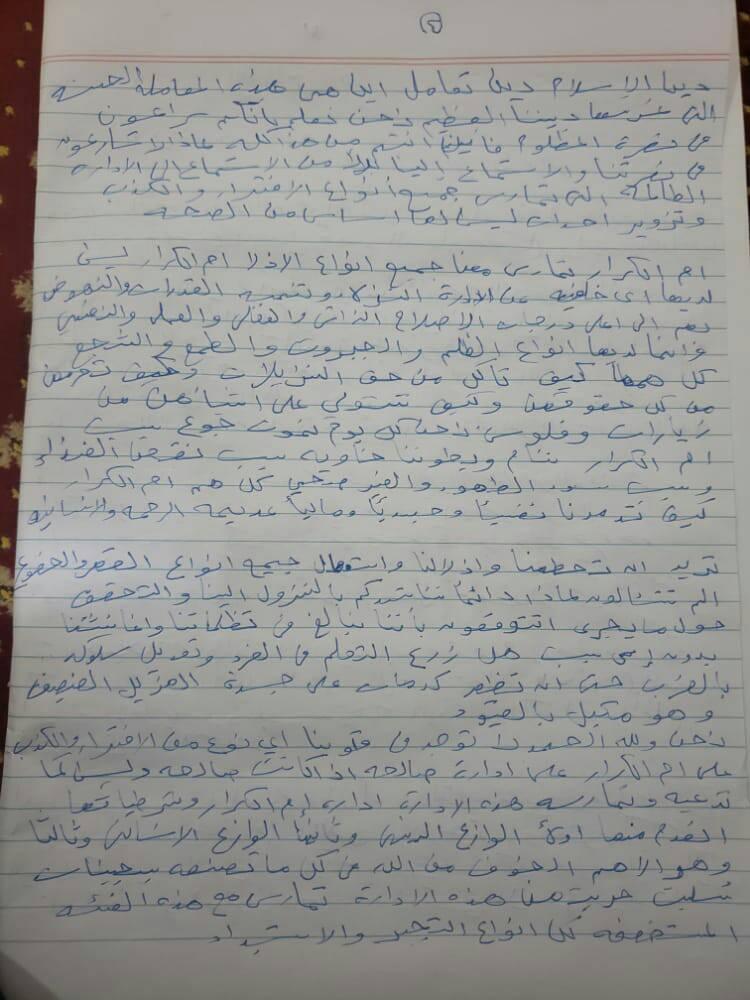 ديننا الإسلام دين تعامل اين هي هذه المعاملة الحسنه
التي عرفها ديننا العظيم نحن نعلم بأنكم تراعون
في نصرة المظلوم فأين أنتم من هذا كله لماذا لا تسارعون
في نصرتنا والاستماع إلينا بدلاً من الاستماع الى الاداره
الظالمة التي تمارس جميع أنواع الافتراء والكذب
وتزوير احداث ليس لها اساس من الصحه
ام الكرار تمارس معنا جميع انواع الاذلال ام الكرار ليس
لديها اي خلفيه عن الإدارة النزلاء وتنميه القدرات والنهوض
بهم الى اعلى درجات الإصلاح الذاتي والعقلي والعملي والنفسي
وانما لديها انواع الظلم والجبروت والطمع والجشع
كل همها كيف تأكل من حق النزيلات وكيف تحرمهن
من كل حقوقهن وكيف تستولي على اشيائهن من
زيارات وفلوس نحن كل يوم نموت جوع بسبب
ام الكرار ننام وبطوننا خاويه بسبب نقص الغذاء
وبسبب سوء الطهور والغير صحي كل هم ام الكرار
كيف تدمرنا نفسياً وجسدياً ومالياً عديمه الرحمه والانسانيه
تريد ان تحطمنا واذلالنا واستعمال جميع انواع القهر والخضوع
الم تتسألون لماذا دائماً نناشدكم بالنزول الينا والتحقق
حول ما يجري اتتوقعون بأننا نبالغ في تظلماتنا واغاثتنا
بدون إي سبب هل زرع التعلم في الفرد وتعديل سلوكه
بالضرب حتى ان تظهر كدمات على جسدة الهزيل الضعيف
وهو مكبل بالقيود
نحن ولله الحمد لا توجد في قلوبنا اي نوع من الافتراء والكذب
على ام الكرار على ادارة صالحه اذا كانت صالحه وليس كما
تدعيه وتمارسه هذه الإدارة ادارة إم الكرار وشرطياتها
انعدم منها اولاً الوازع الديني وثانياً الوازع الانساني وثالثاً
وهو الاهم الخوف من الله في كل ما تصنعه بسجينات
سلبت حريتهن هذه الادارة تمارس مع هذه الفئه
المستضعفه كل انواع التجبر والاستبداد